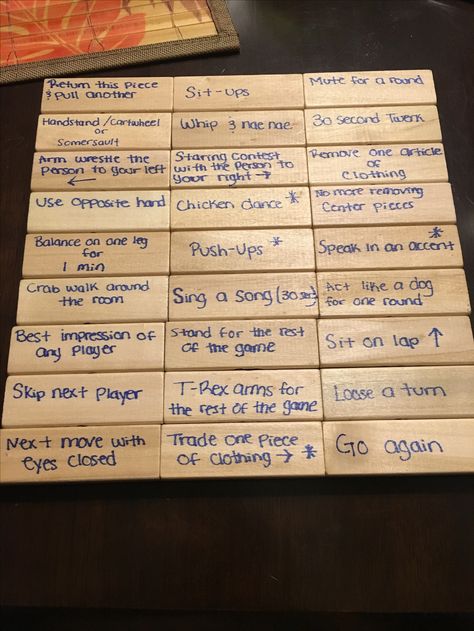 Return this piece
& Pull another
Sit-ups
Mute for a round
Handstand/cartwheel
or
Somersault
Whip & nae nae
30 second Twerk
Arm wrestle the
Person to your left
←
Staring contest
with the person to
your right →
Remove one article
of
clothing
Use opposite hand
Chicken dance *
No more removing
Center pieces
Balance on one leg
for
1 min
Push-Ups *
*
Speak in an accent
Crab walk around
the room
Sing a song (30 sec)
Act like a dog
for one round
Best impression of
any player
Stand for the rest
of the game
Sit on lap ↑
Skip next player
T-Rex arms for
the rest of the game
Loose a turn
Next move with
eyes closed
Trade one piece
of clothing → *
Go again